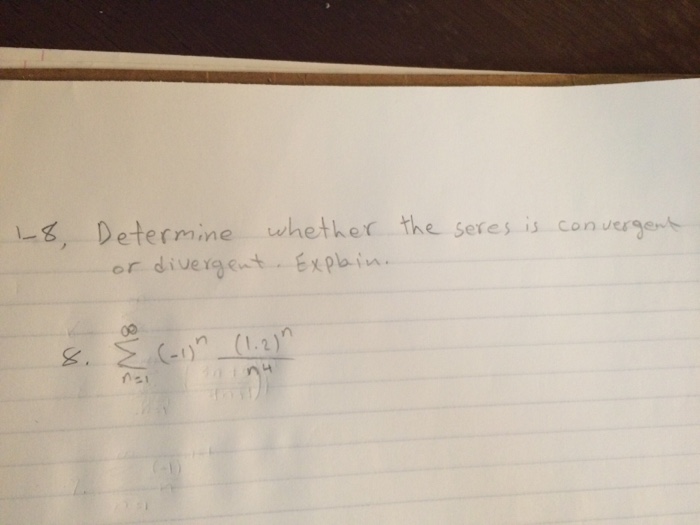 1-8, Determine whether the seres is convergent
or divergent. Explain.
8. ∞ Σ n=1 (-1)ⁿ (1.2)ⁿ / n⁴